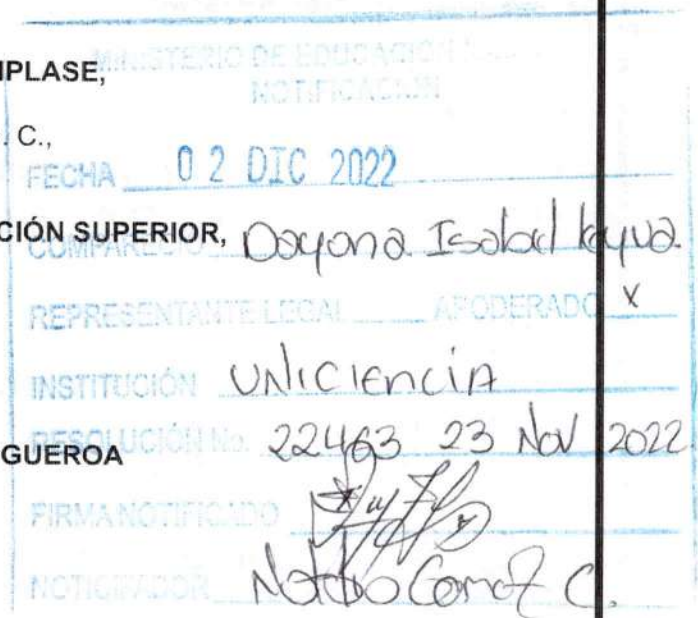 MINISTERIO DE EDUCACIÓN
NOTIFICACIÓN
IPLASE,
. C.,
FECHA 02 DIC 2022
CIÓN SUPERIOR,
COMPARECIÓ Dayana Isabel
REPRESENTANTE LEGAL APODERADO X
INSTITUCIÓN UNICIENCIA
RESOLUCIÓN No. 22463 23 Nov 2022
GUEROA
FIRMA NOTIFICADO
NOTIFICADOR C.